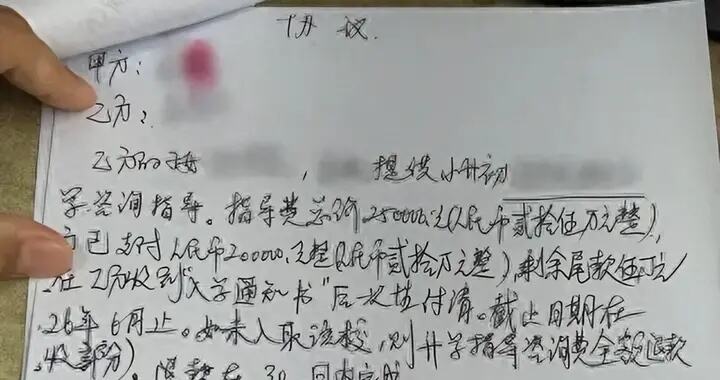 协议.
甲方：
乙方：
乙方的孩 ，提供小升初
学咨询指导。指导费总价250000元(人民币贰拾伍万元整),
方已支付人民币200000元整(人民币贰拾万元整),剩余尾款伍万元
在乙方收到"入学通知书"后一次性付清。截止日期在
26年6月止。如未入取该校,则升学指导咨询费全额退款
收部分)。退款在30日内完成